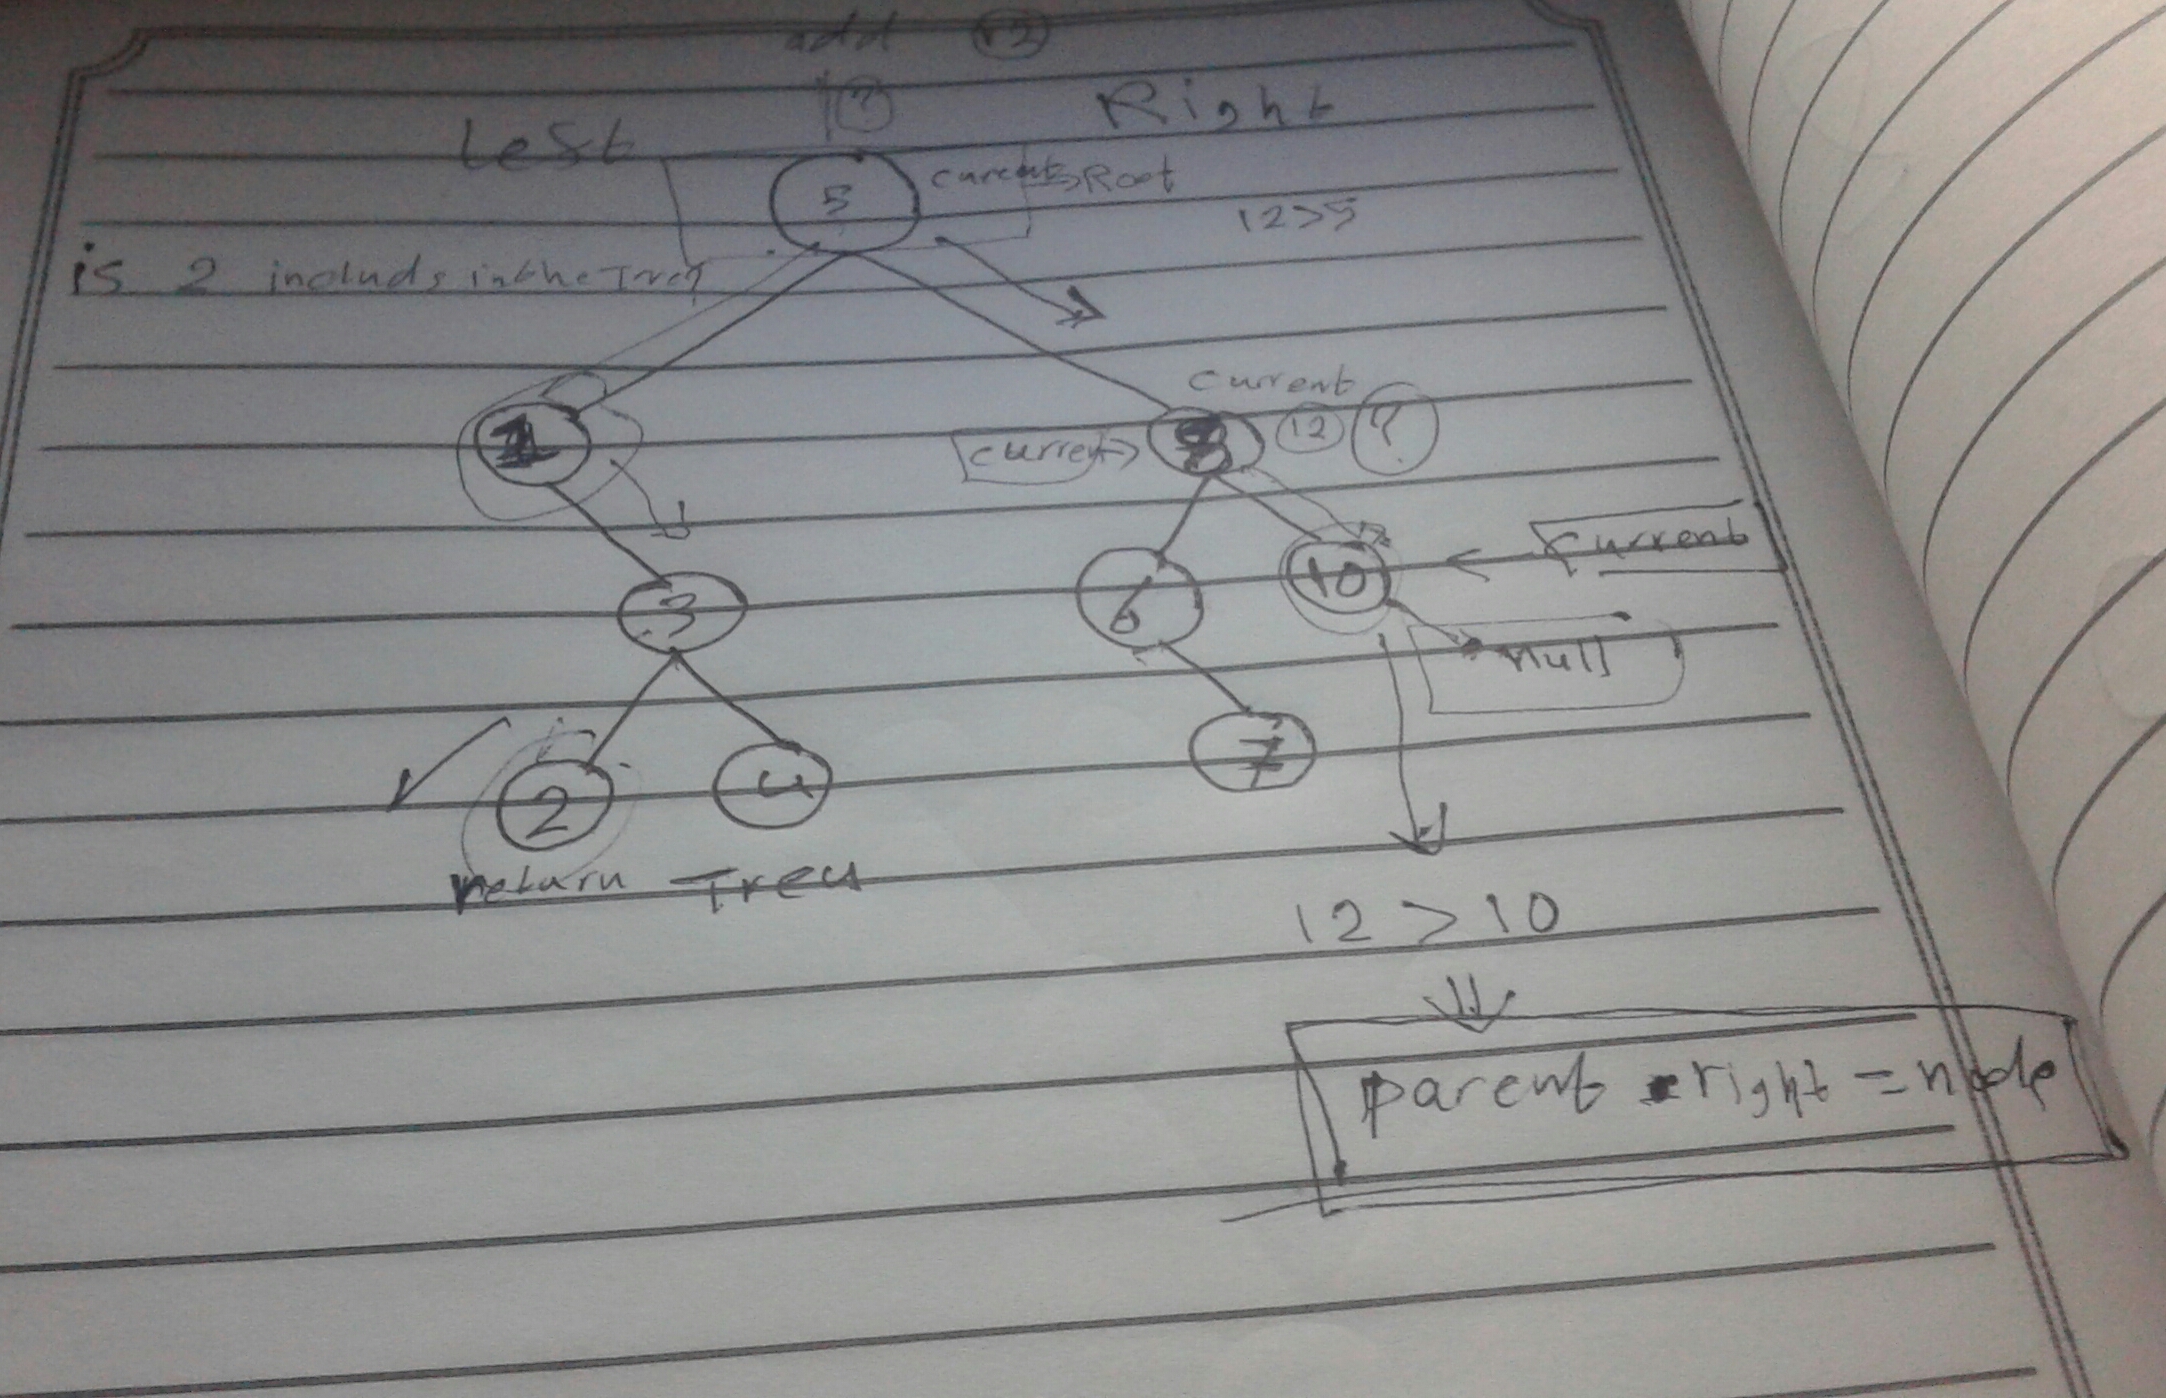 add 12
?
Left Right
5 current => Root
12>5
is 2 includs in the Tree?
current
1 current → 8 12 ?
current
3 6 10
null
2 4 7
return Tree
12 > 10
parent . right = node